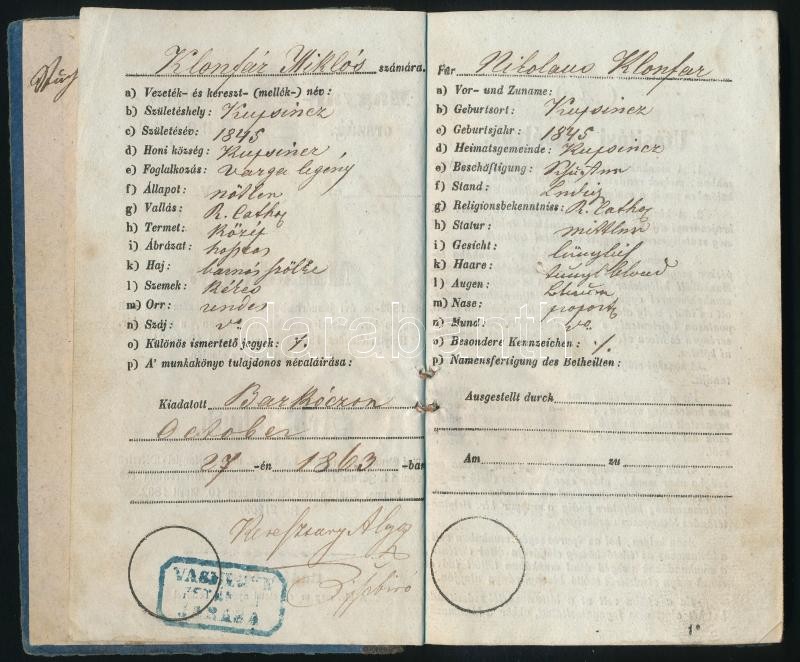 Klonfár Miklós számára.
a) Vezeték- és kereszt- (mellék-) név:
b) Születéshely: Kupsincz
c) Születésév: 1845
d) Honi község: Kupsincz
e) Foglalkozás: varga legény
f) Állapot: nőtlen
g) Vallás: R. Cath.
h) Termet: közép
i) Ábrázat: hosszas
k) Haj: barnás szőke
l) Szemek: kékes
m) Orr: rendes
n) Száj:
o) Különös ismertető jegyek: ·/.
p) A' munkakönyv tulajdonos névaláirása:
Kiadatott Barkóczon
October
27 -én 1863 -ban
VASMEGYE
Für Nikolaus Klonfar
a) Vor- und Zuname:
b) Geburtsort: Kupsincz
c) Geburtsjahr: 1845
d) Heimatsgemeinde: Kupsincz
e) Beschäftigung: Schuster
f) Stand: Ledig
g) Religionsbekenntniss: R. Cath.
h) Statur: mittlere
i) Gesicht: länglich
k) Haare:
l) Augen:
m) Nase: proport
n) Mund:
o) Besondere Kennzeichen: ·/.
p) Namensfertigung des Betheilten:
Ausgestellt durch
Am zu
1*
darabanth